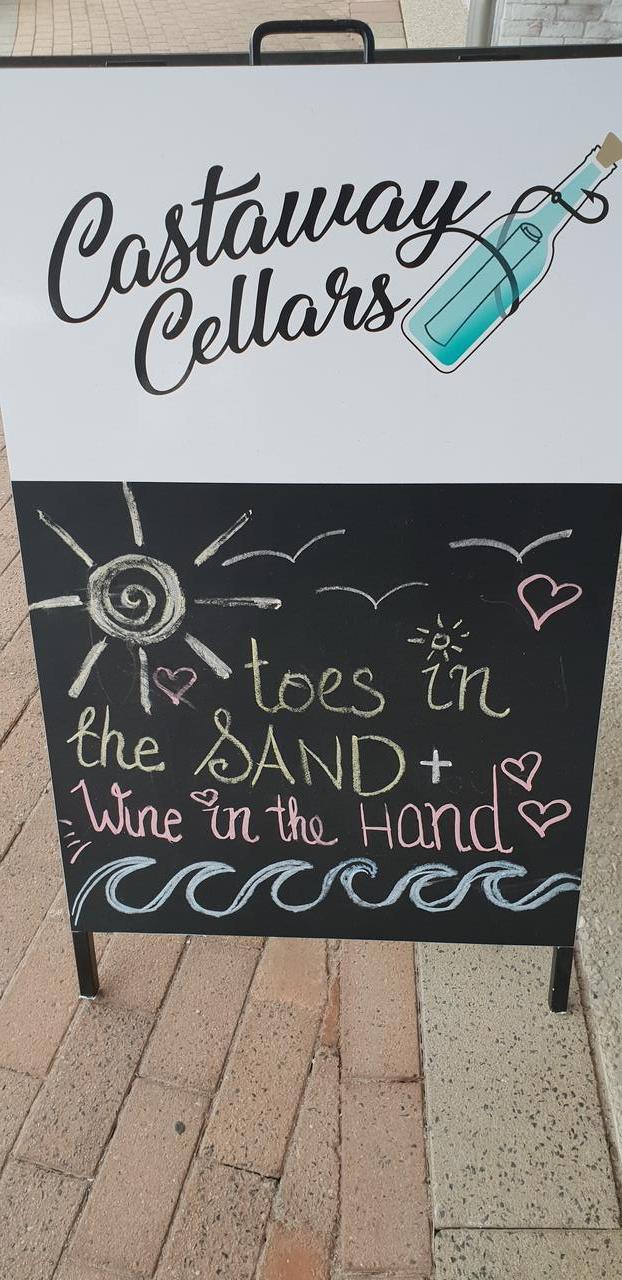 Castaway
Cellars
toes in
the SAND +
Wine in the Hand